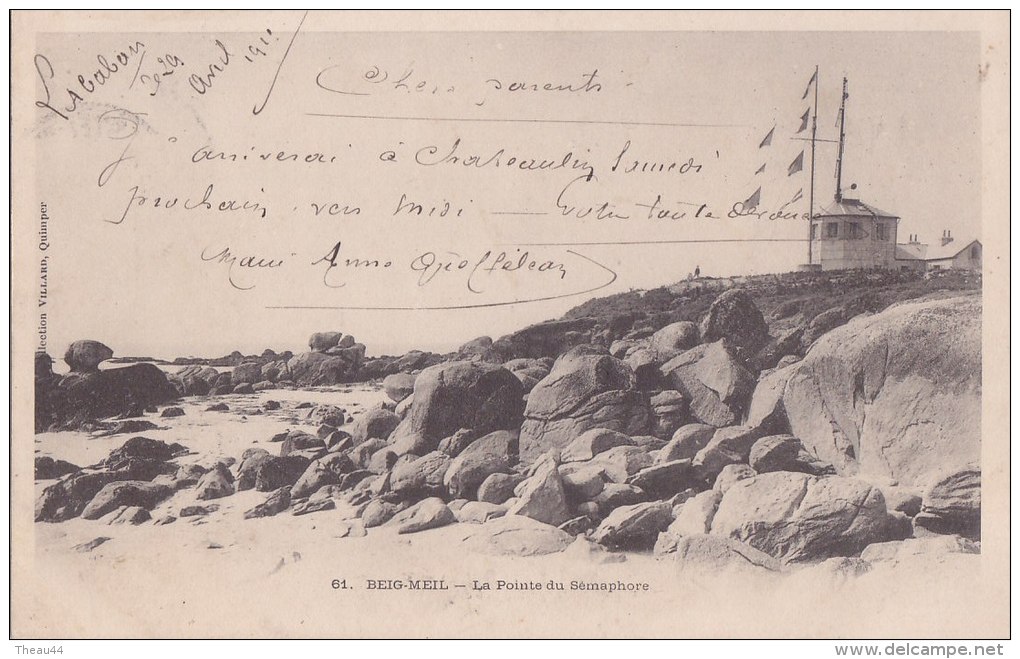 Lababan
le 29
avril 1911
Chers parents
J'arriverai à Chateaulin Samedi
prochain vers midi — Votre toute dévouée
Marie Anne
Collection VILLARD, Quimper
61. BEIG-MEIL — La Pointe du Sémaphore
Theau44
www.delcampe.net